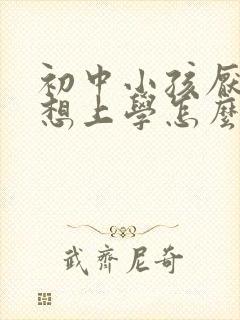 初中小孩厌
想上學怎麼
武齊尼奇